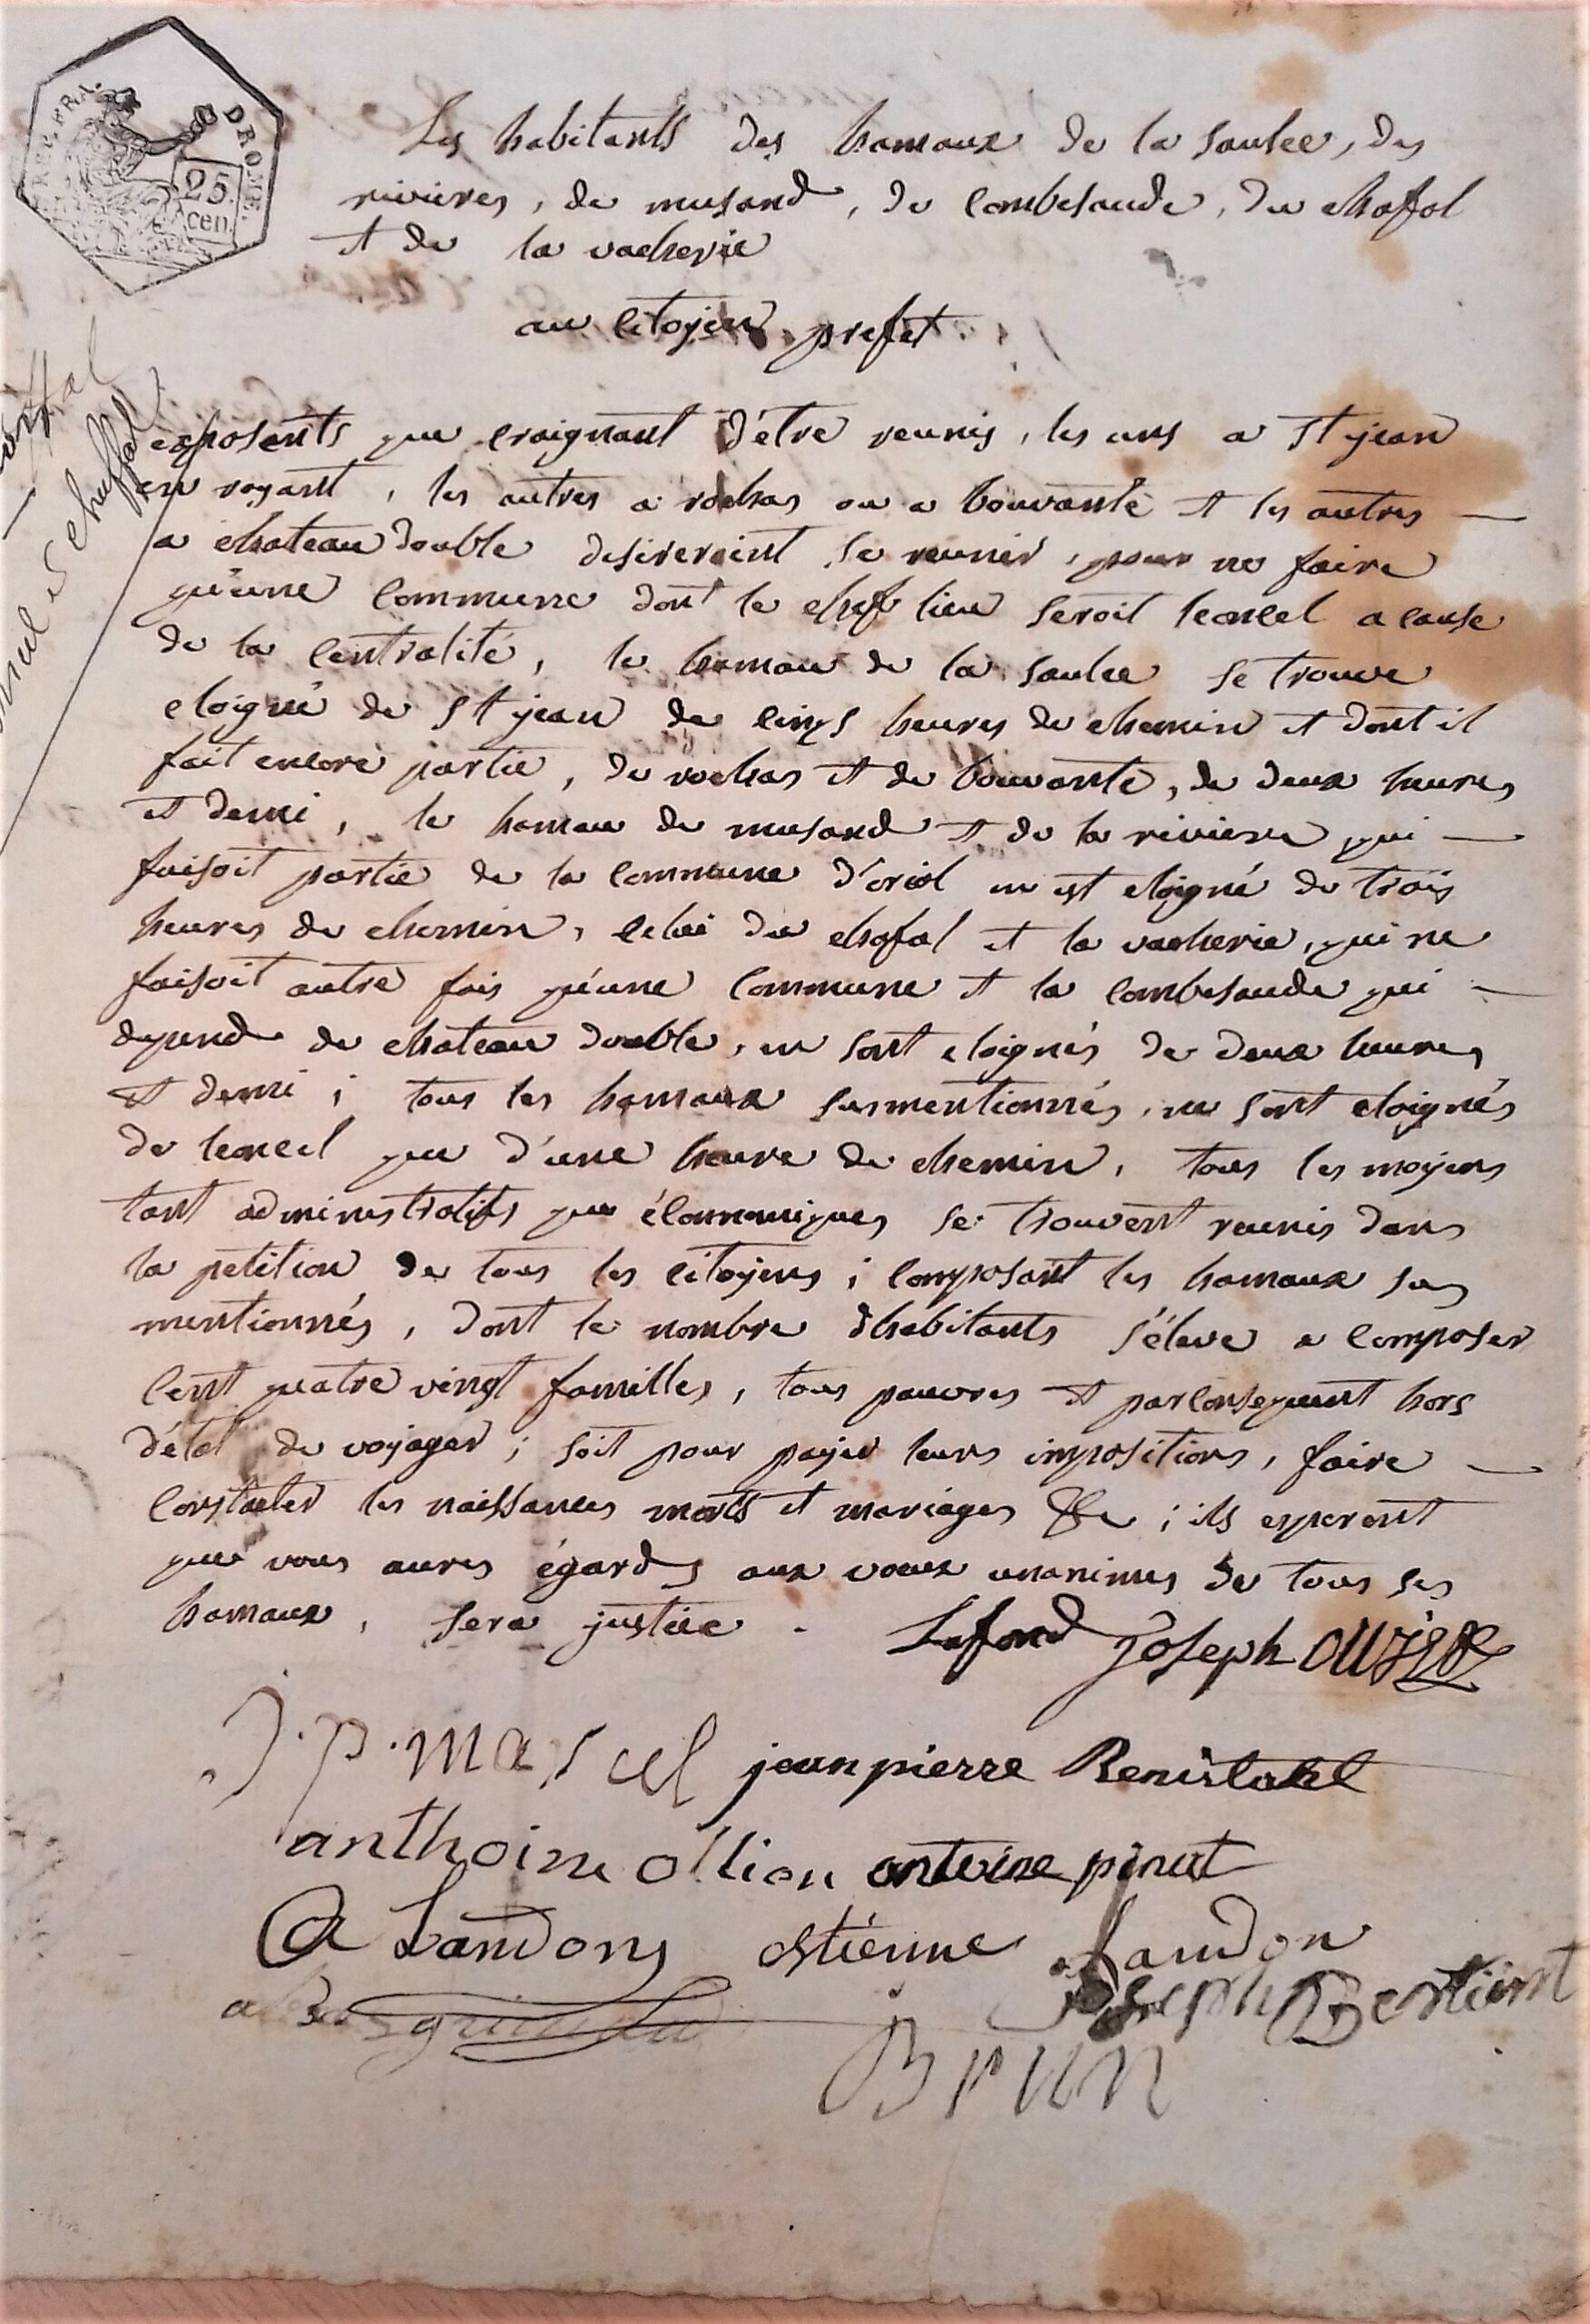 REP. FRA.
DROME.
25
cen.
Les habitants des hamaux de la saulee, des
rivieres, de musand, de combesaude, du chaffol
et de la vacherie
au citoyen prefet
exposents que craignant d'être reunis, les uns a st jean
en royant, les autres a rochas ou a bouvante et les autres
a chateau double desireroint se reunir, pour ne faire
qu'une commune dont le chef lieu seroit leoncel a cause
de la centralité, le hamau de la saulee se trouve
eloigné de st jean de cinqs heures de chemin et dont il
fait encore partie, de rochas et de bouvante, de deux heures
et demi, le hamau de musand et de la riviere qui
faisoit partie de la commune d'oriol en est eloigné de trois
heures de chemin, celui du chafal et la vacherie, qui ne
faisoit autre fois qu'une commune et la combesaude qui
depend de chateau double, en sont eloignés de deux heures
et demi ; tous les hamaux susmentionnés, ne sont eloignés
de leoncel que d'une heure de chemin, tous les moyens
tant administratifs que économiques se trouvent reunis dans
la petition de tous les citoyens ; composant les hamaux sus
mentionnés, dont le nombre d'habitants s'éleve a composer
cent quatre vingt familles, tous pauvres et parconsequent hors
d'état de voyager ; soit pour payer leurs impositions, faire
constater les naissances morts et mariages &c ; ils esperent
que vous aures égards aux voeux unanimes de tous ses
hamaux, sera justice.
Lafond Joseph
J. p. marcel jean pierre
anthoine ollion antoine pinet
A Landony estienne Landon
Joseph
Brun